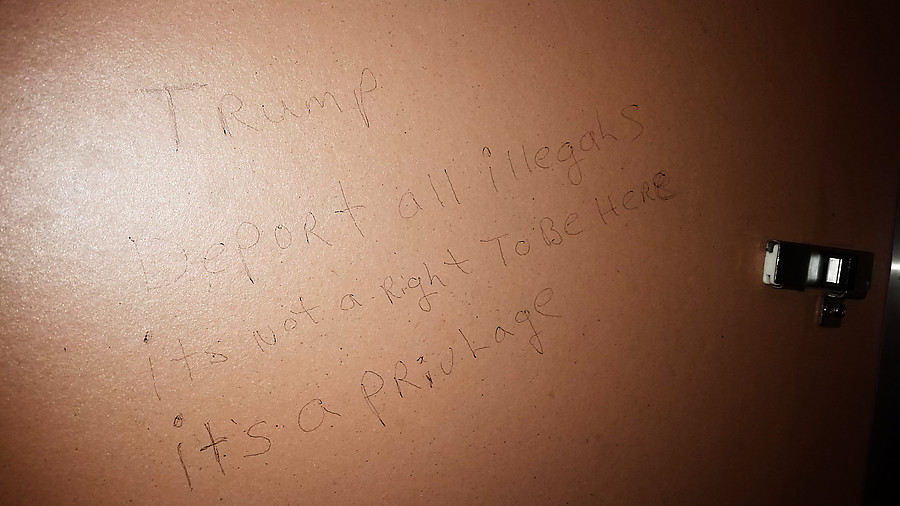 TRump
Deport all illegals
Its Not a Right To Be HERE
it's a PRivlage